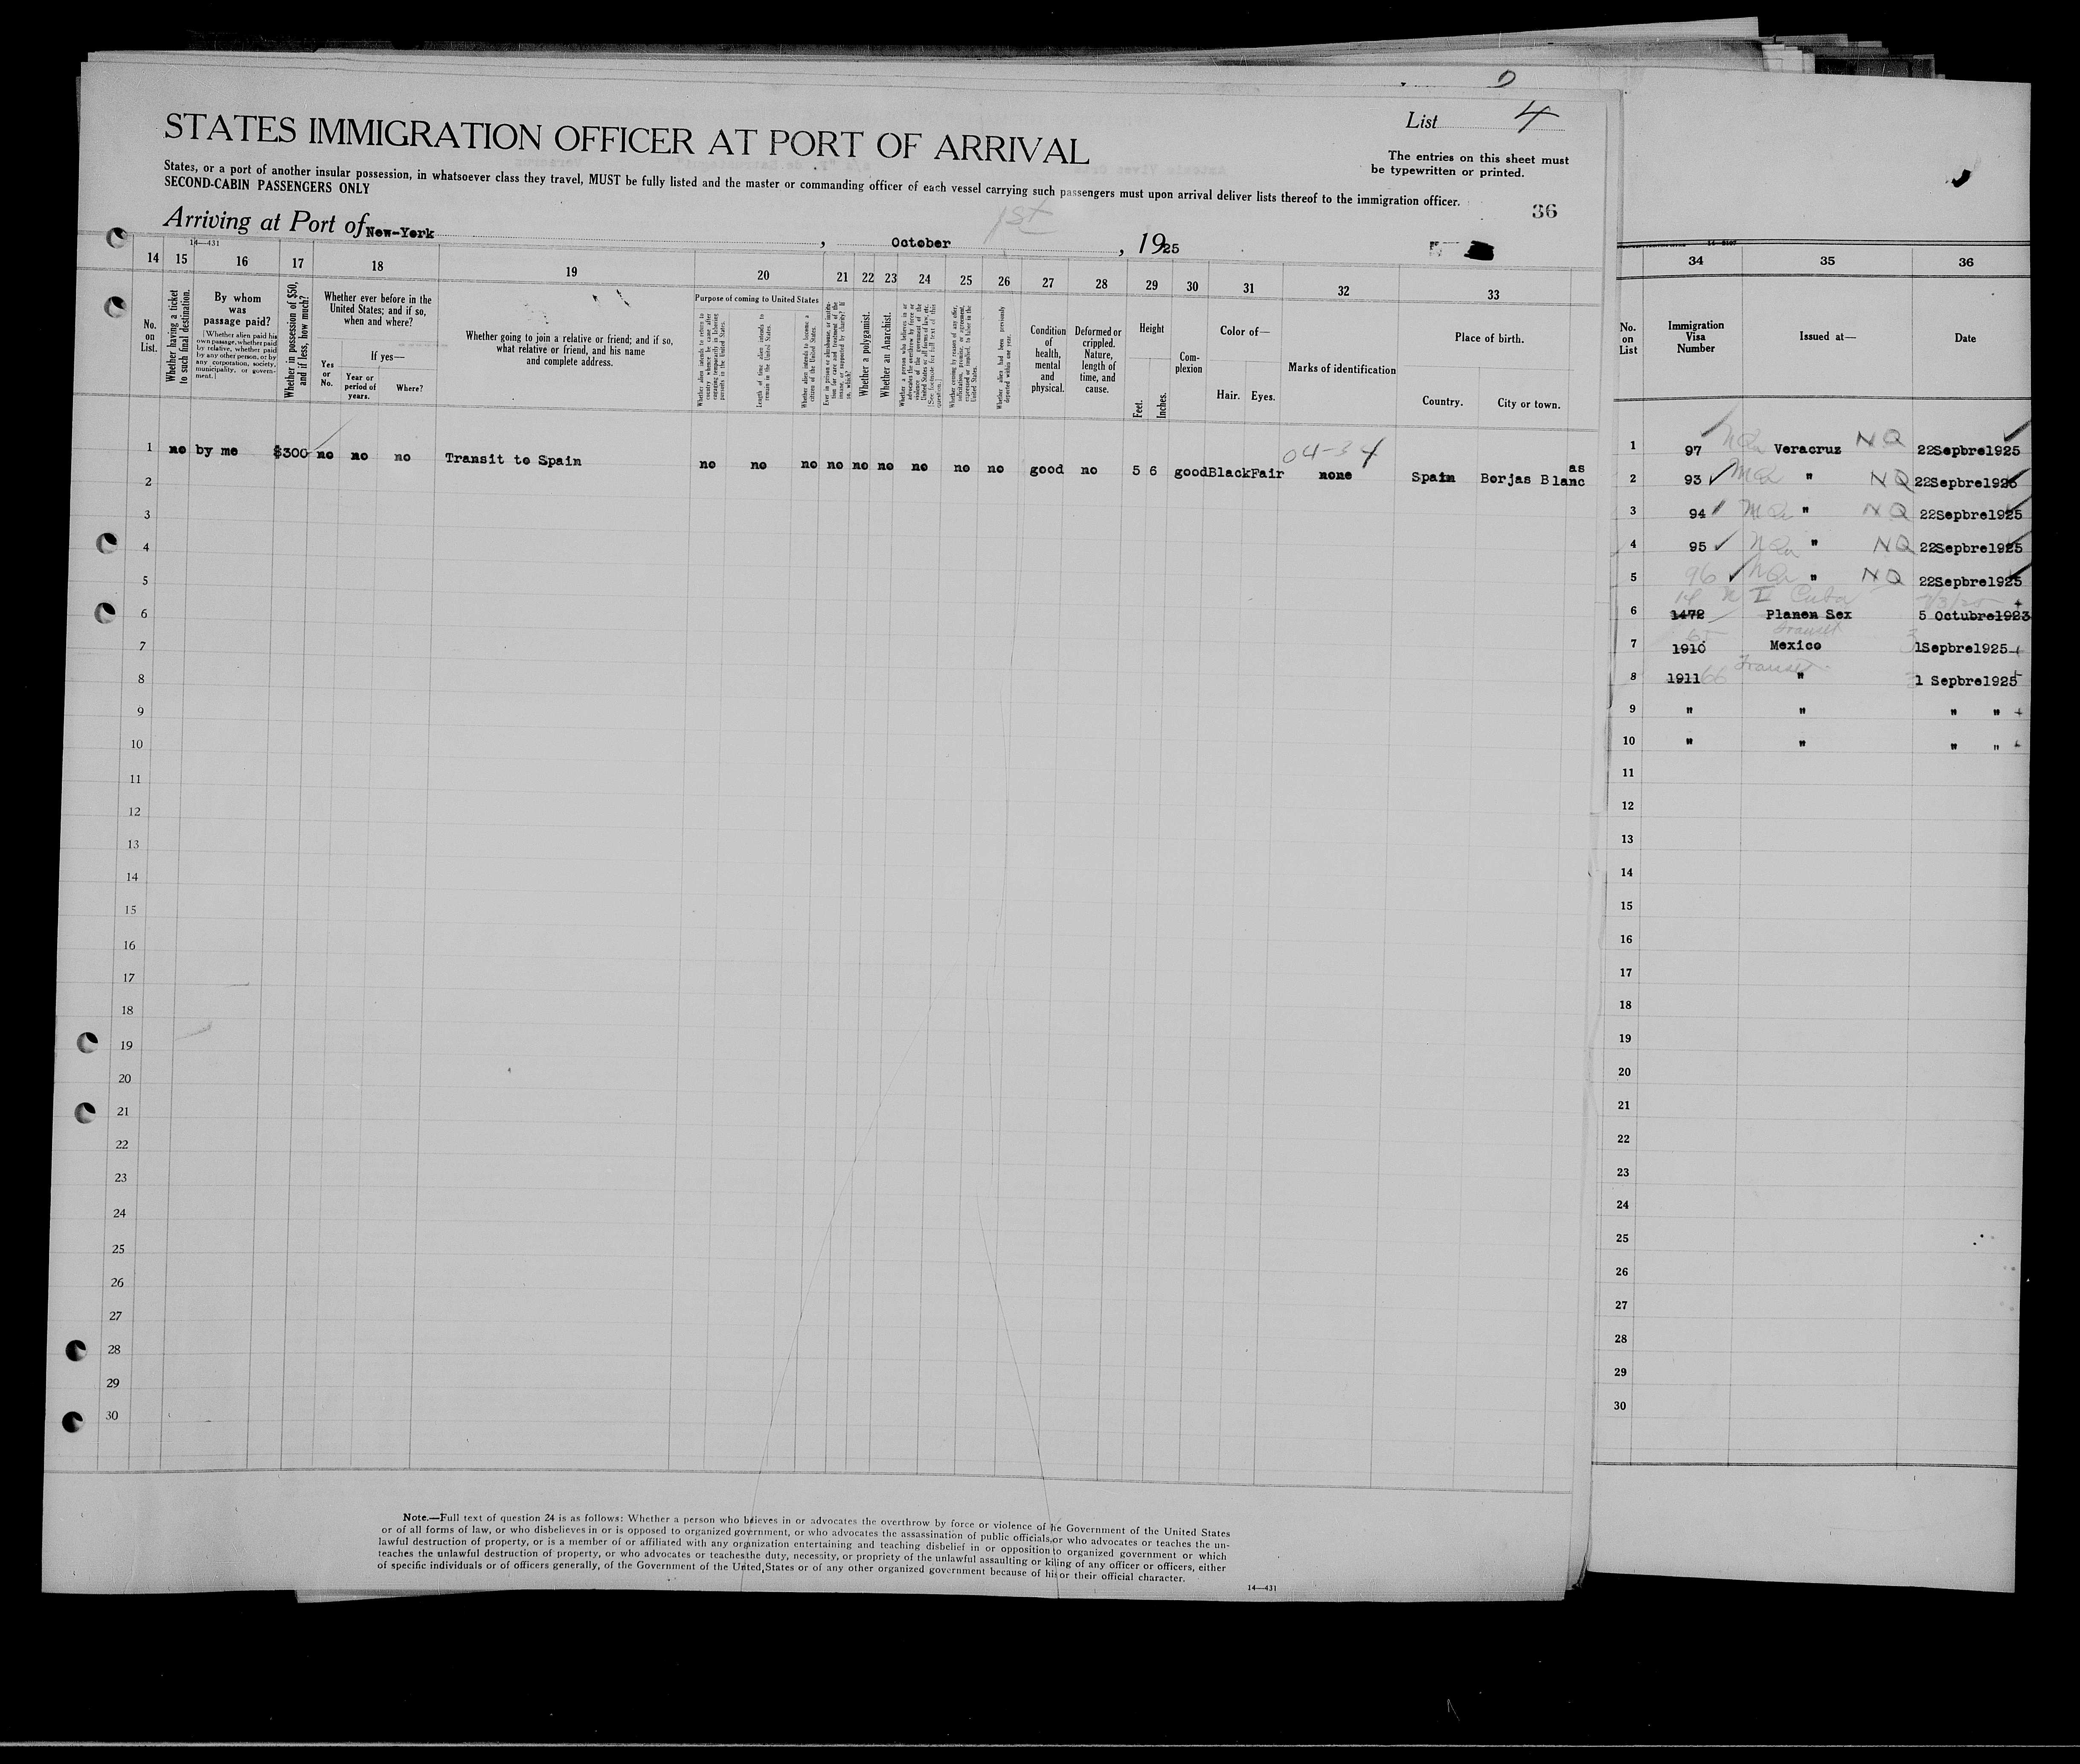 List 4
STATES IMMIGRATION OFFICER AT PORT OF ARRIVAL
The entries on this sheet must
be typewritten or printed.
States, or a port of another insular possession, in whatsoever class they travel, MUST be fully listed and the master or commanding officer of each vessel carrying such passengers must upon arrival deliver lists thereof to the immigration officer.
SECOND-CABIN PASSENGERS ONLY
36
1st
Arriving at Port of New-York, October, 1925
14—431
14 15 16 17 18 19 20 21 22 23 24 25 26 27 28 29 30 31 32 33
No. on List.
Whether having a ticket to such final destination.
By whom was passage paid?
[Whether alien paid his own passage, whether paid by relative, whether paid by any other person, or by any corporation, society, municipality, or government.]
Whether in possession of $50, and if less, how much?
Whether ever before in the United States; and if so, when and where?
Yes or No.
If yes—
Year or period of years.
Where?
Whether going to join a relative or friend; and if so, what relative or friend, and his name and complete address.
Purpose of coming to United States
Whether alien intends to return to country whence he came after engaging temporarily in laborer pursuits in the United States.
Length of time alien intends to remain in the United States.
Whether alien intends to become a citizen of the United States.
Whether a polygamist.
Whether an Anarchist.
Whether alien had been previously deported within one year.
Condition of health, mental and physical.
Deformed or crippled. Nature, length of time, and cause.
Height
Feet. Inches.
Complexion
Color of—
Hair. Eyes.
Marks of identification
Place of birth.
Country. City or town.
04-34
1 no by me $300 no no no Transit to Spain no no no no no no no no no good no 5 6 good Black Fair none Spain Borjas Blanc as
2
3
4
5
6
7
8
9
10
11
12
13
14
15
16
17
18
19
20
21
22
23
24
25
26
27
28
29
30
Note.—Full text of question 24 is as follows: Whether a person who believes in or advocates the overthrow by force or violence of the Government of the United States
or of all forms of law, or who disbelieves in or is opposed to organized government, or who advocates the assassination of public officials, or who advocates or teaches the un-
lawful destruction of property, or is a member of or affiliated with any organization entertaining and teaching disbelief in or opposition to organized government or which
teaches the unlawful destruction of property, or who advocates or teaches the duty, necessity, or propriety of the unlawful assaulting or killing of any officer or officers, either
of specific individuals or of officers generally, of the Government of the United States or of any other organized government because of his or their official character.
14—431
34 35 36
No. on List
Immigration Visa Number
Issued at—
Date
1 97 Veracruz NQ 22Sepbre1925
2 93 " NQ 22Sepbre1925
3 94 " NQ 22Sepbre1925
4 95 " NQ 22Sepbre1925
5 96 " NQ 22Sepbre1925
Cuba
6 1472 Planen Sex 5 Octubre1923
Transit
7 1910 Mexico 1Sepbre1925
Transit
8 1911 66 " 1 Sepbre1925
9 " " " "
10 " " " "
11
12
13
14
15
16
17
18
19
20
21
22
23
24
25
26
27
28
29
30